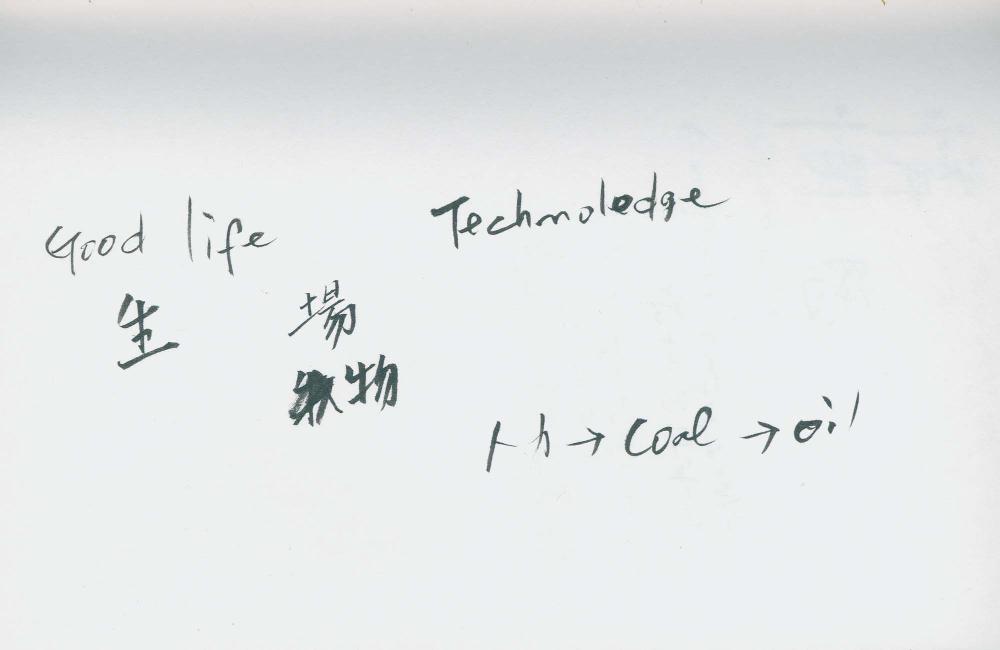 Good life Technoledge
生 場
物
→ coal → oil